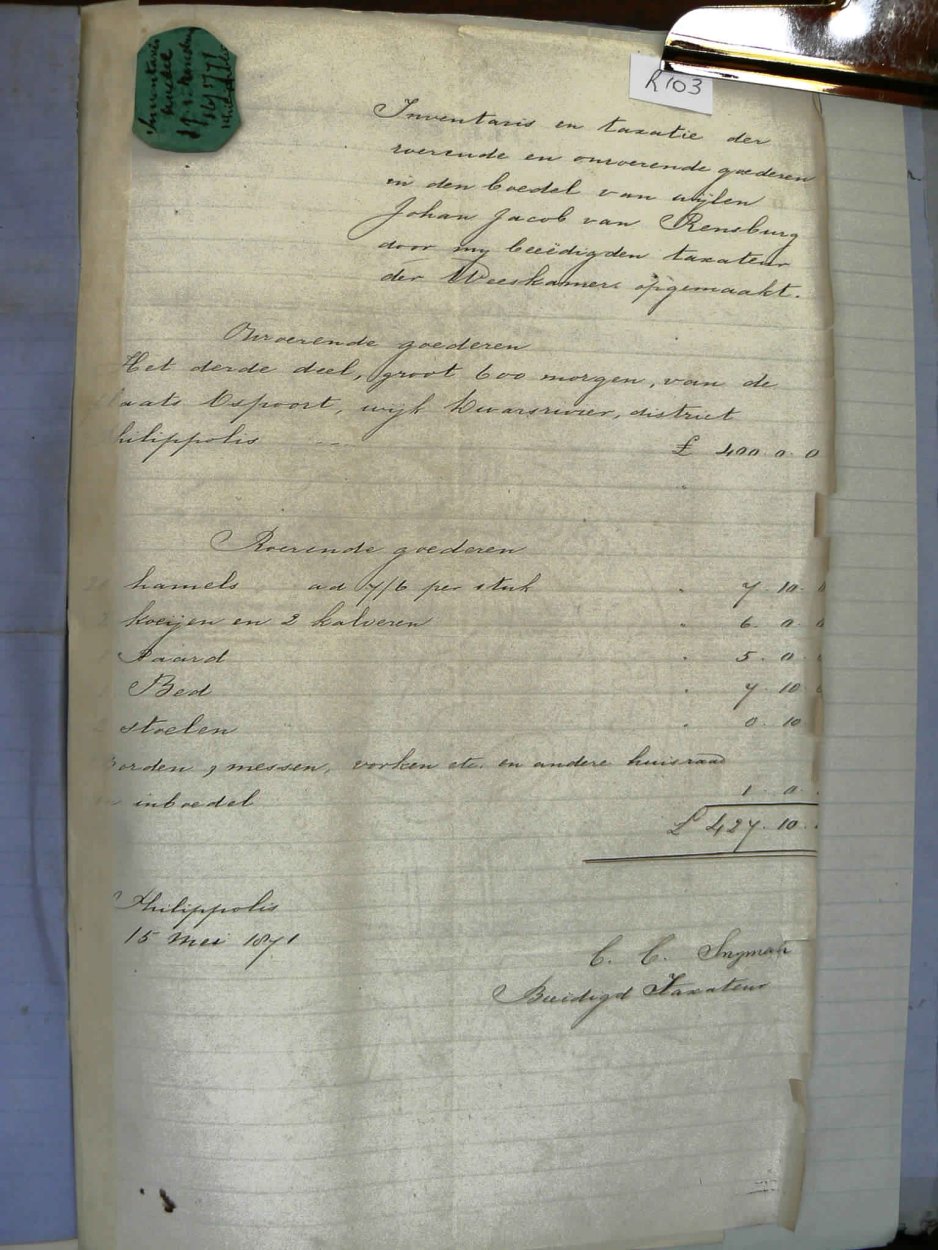 R103
Inventaris
boedel
Inventaris en taxatie der
roerende en onroerende goederen
in den boedel van wijlen
Johan Jacob van Rensburg
door my beëedigden taxateur
der Weeskamers opgemaakt.
Onroerende goederen
Het derde deel, groot 600 morgen, van de
laats Uspoort, wijk Kwarsrivier, district
hilippolis £ 400 . 0 . 0
Roerende goederen
hamels ad 7/6 per stuk " 7 . 10 . 0
2 koeijen en 2 kalveren " 6 . 0 . 0
Paard " 5 . 0 .
Bed " 7 . 10 .
stoelen " 0 . 10
borden, messen, vorken etc. en andere huisraad
inboedel 1 . 0 .
£ 427 . 10 .
Philippolis
15 Mei 1871
C. C. Snyman
Beëidigd Taxateur